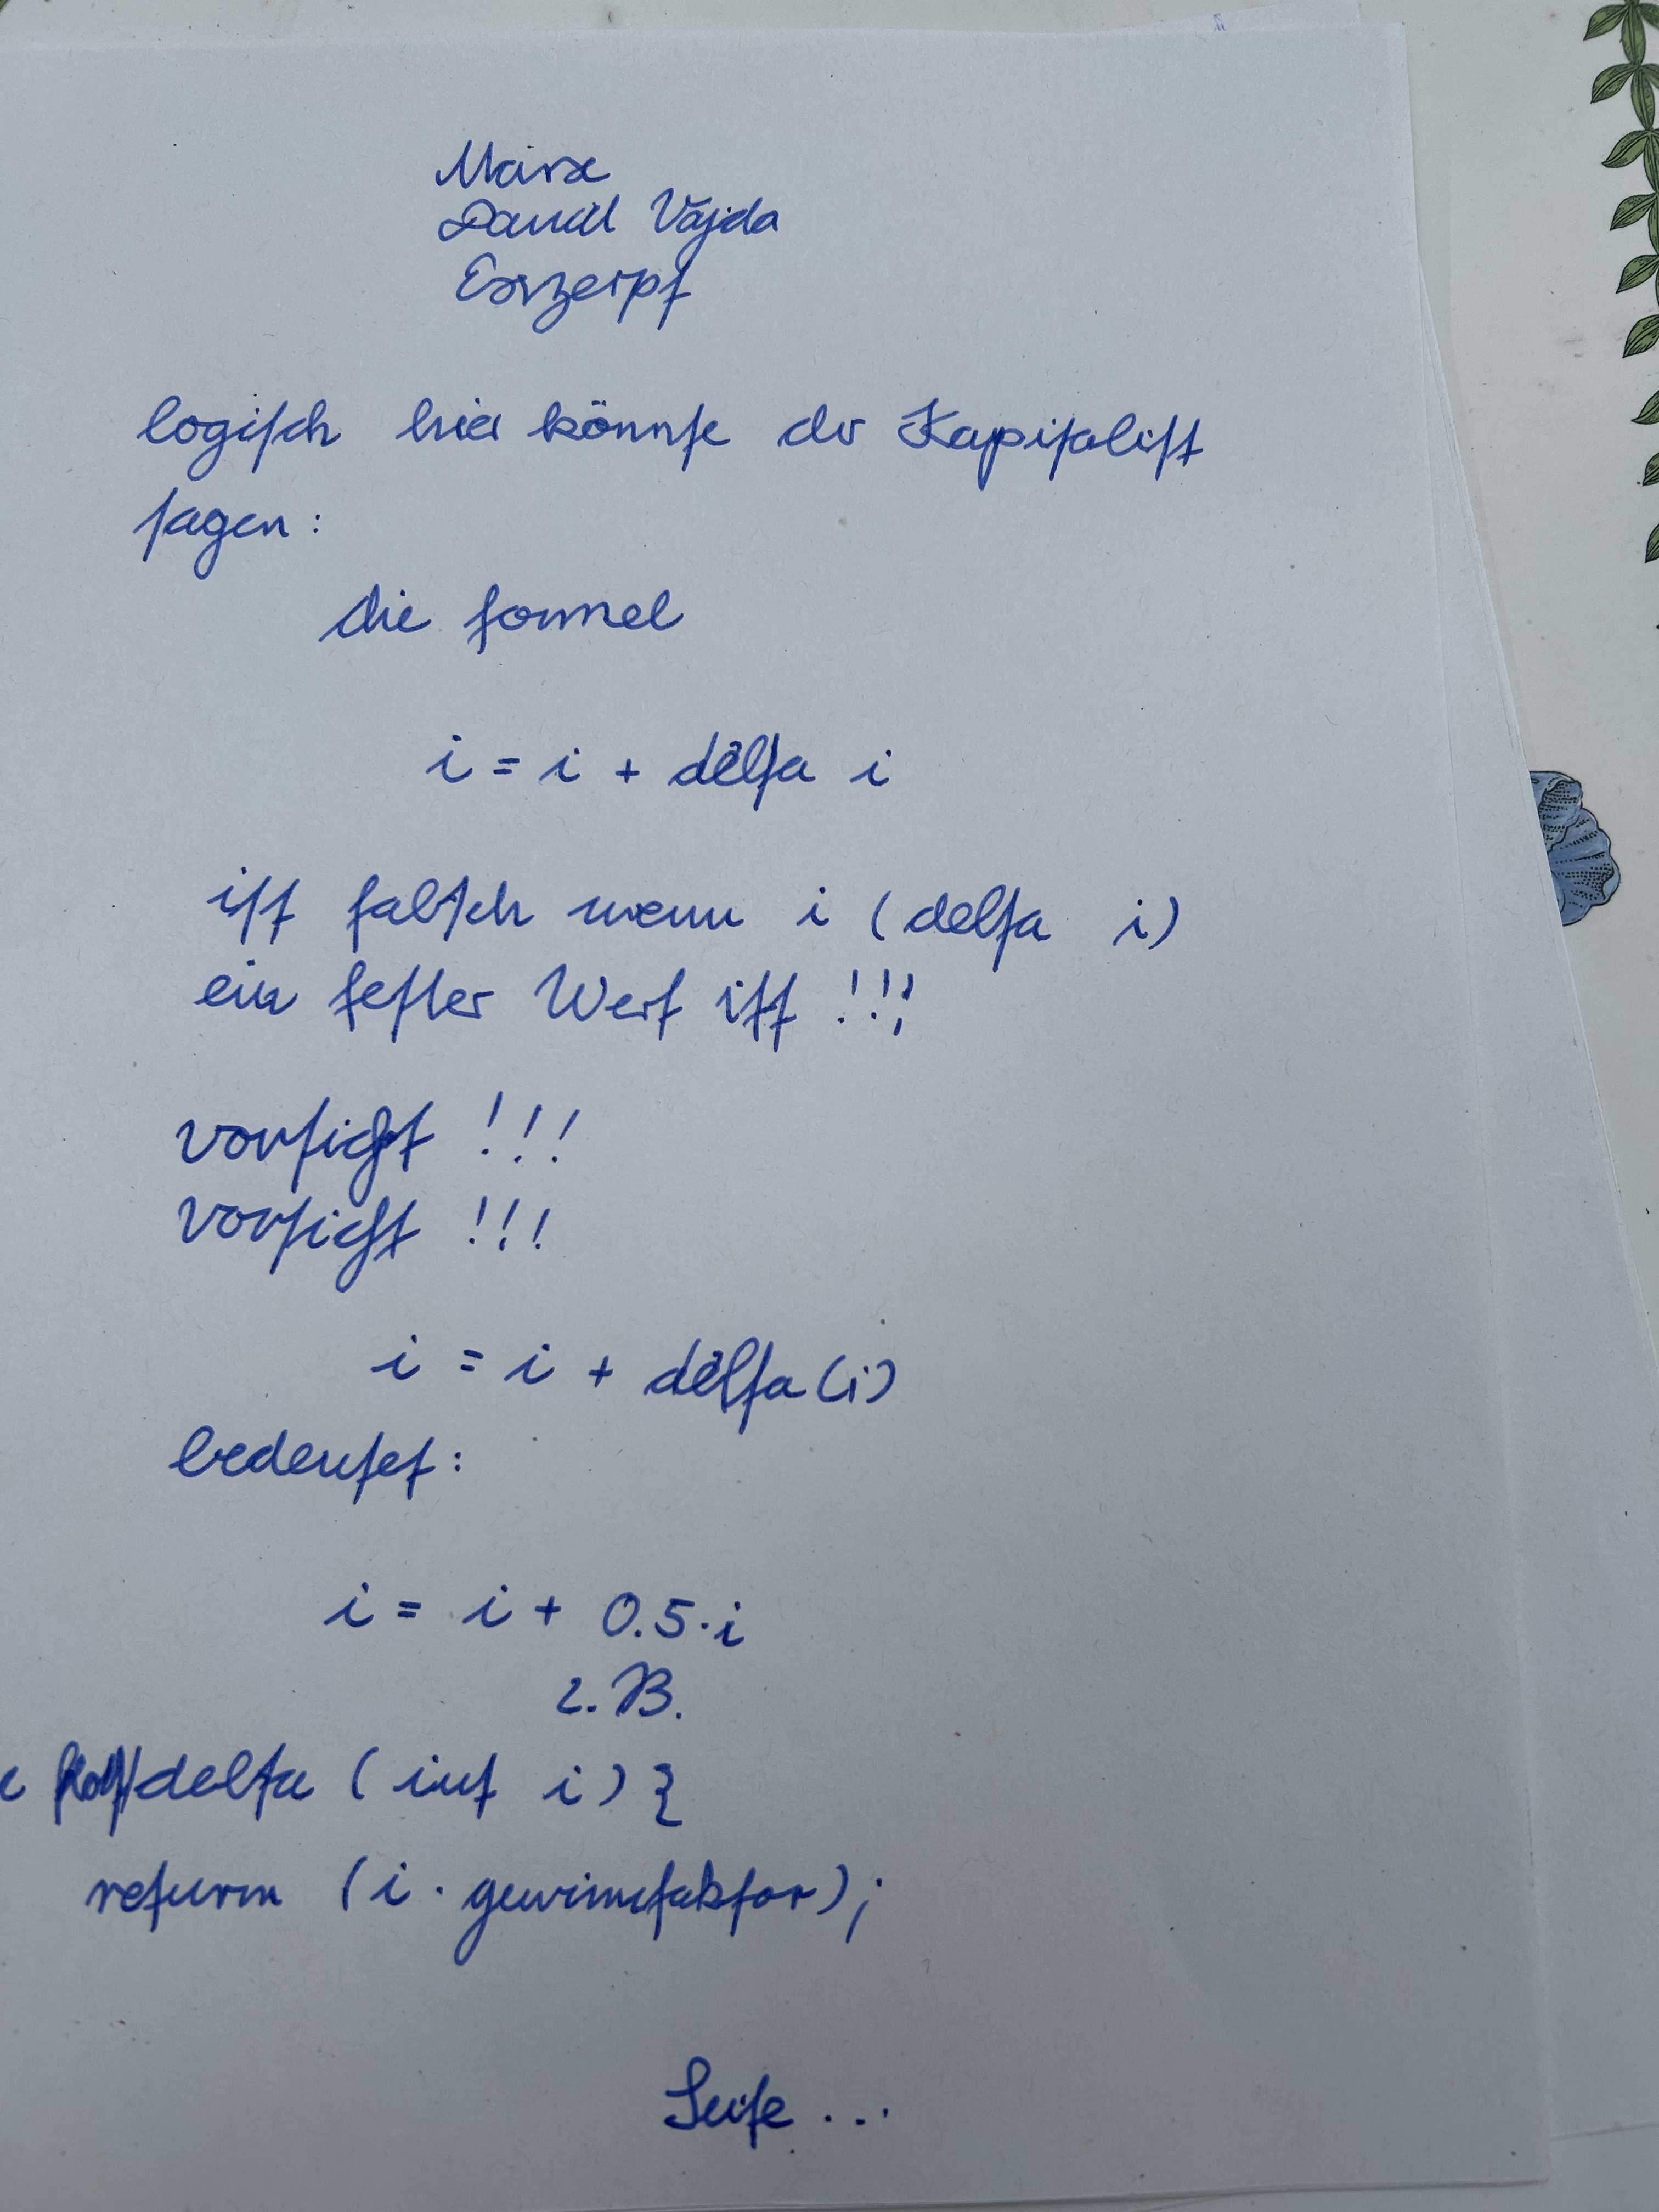 Marx
David Vajda
Exzerpt
logisch hier könnte der Kapitalist
sagen:
die formel
i = i + delta i
ist falsch wenn i (delta i)
ein fester Wert ist !!!
vorsicht !!!
vorsicht !!!
i = i + delta(i)
bedeutet:
i = i + 0.5·i
z.B.
delta (int i) }
return (i · gewinnfaktor);
Seite ...